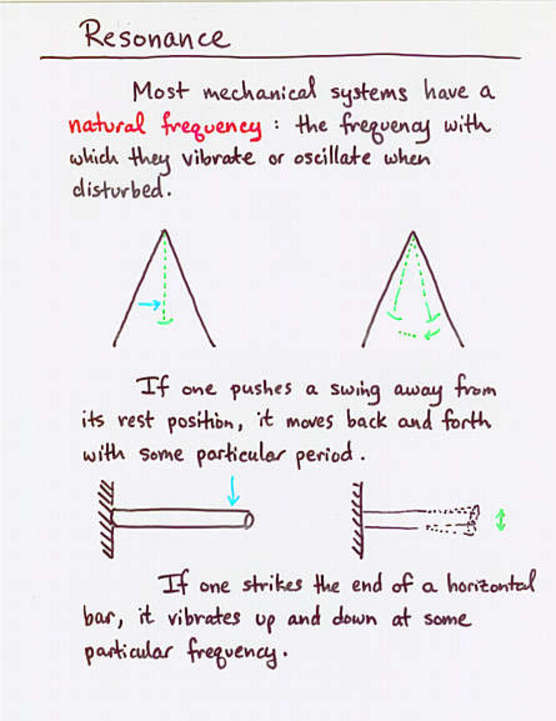 Resonance
Most mechanical systems have a
natural frequency : the frequency with
which they vibrate or oscillate when
disturbed.
If one pushes a swing away from
its rest position, it moves back and forth
with some particular period.
If one strikes the end of a horizontal
bar, it vibrates up and down at some
particular frequency.